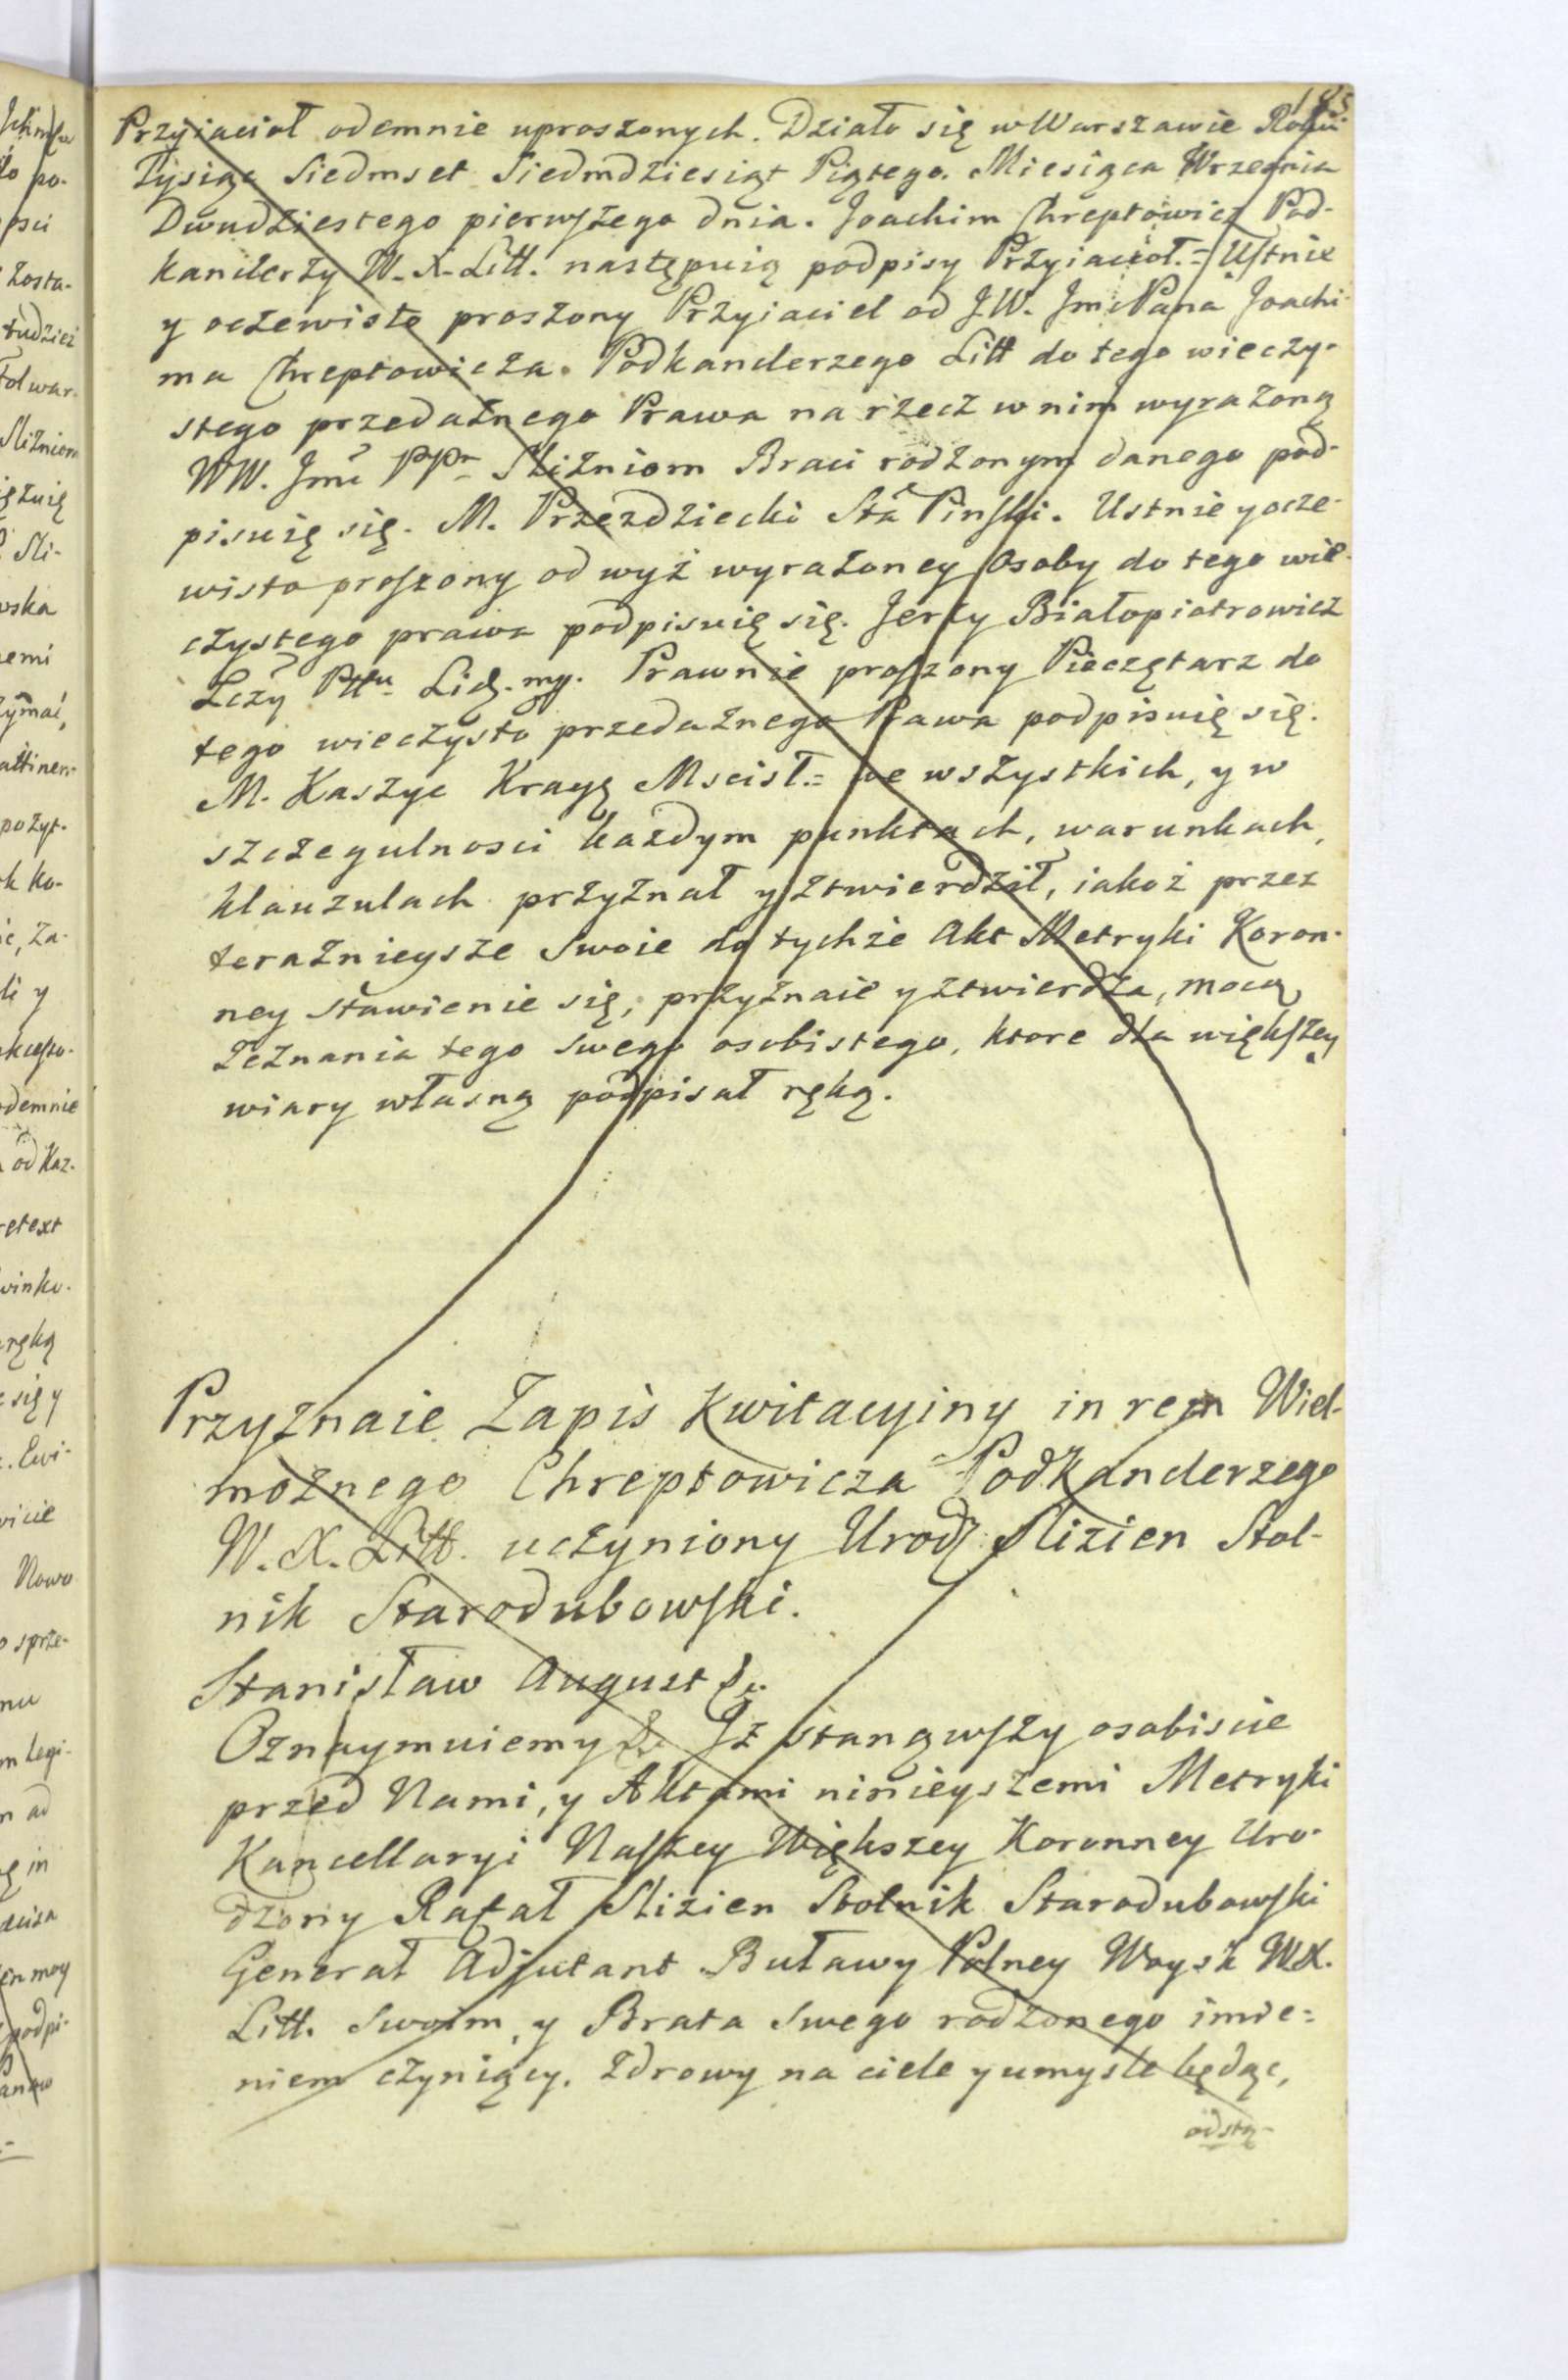 Przyiacioł odemnie uproszonych. Działo się w Warszawie Roku
Tysiąc Siedmset Siedmdziesiąt Piątego. Miesiąca Wrzesnia
Dwudziestego pierwszego dnia. Joachim Chreptowicz Pod-
kanclerzy W. X. Litt. następuią podpisy Przyiacioł. = Ustnie
y oczewisto proszony Przyiaciel od J.W. Jmc Pana Joachi-
ma Chreptowicza. Podkanclerzego Litt do tego wieczy-
stego przedaznego Prawa na rzecz w nim wyrażoną
WW. Jmć PPn Sliżniom Braci rodzonym danego pod-
pisuię się. M. Przezdziecki Sta Pinski. Ustnie y ocze-
wisto proszony od wyż wyrażoney Osoby do tego wie-
czystego prawa podpisuię się. Jerzy Białopiotrowicz
Prawnie proszony Pieczętarz do
tego wieczysto przedażnego Prawa podpisuię się.
M. Kaszyc Mscisł. = we wszystkich, y w
szczegulnosci każdym punktach, warunkach,
klauzulach przyznał y ztwierdził, iakoż przez
teraznieysze Swoie do tychże Akt Metryki Koron-
ney stawienie się, przyznaie y ztwierdza, mocą
Zeznania tego swego osobistego, ktore dla większey
wiary własną podpisał ręką.
Przyznaie Zapis Kwitacyiny in rem Wiel-
możnego Chreptowicza Podkanclerzego
W. X. Litt. uczyniony Urodz Slizien Stol-
nik Starodubowski.
Stanisław August &c.
Oznaymuiemy &c Iż stanąwszy osobiscie
przed Nami, y Aktami ninieyszemi Metryki
Kancellaryi Naszey Większey Koronney Uro-
dzony Rafał Slizien Stolnik Starodubowski
Generał Adjutant Buławy Polney Woysk WX.
Litt. swoim, y Brata swego rodzonego imie=
niem czyniący. Zdrowy na ciele y umysle będąc,
odstą-